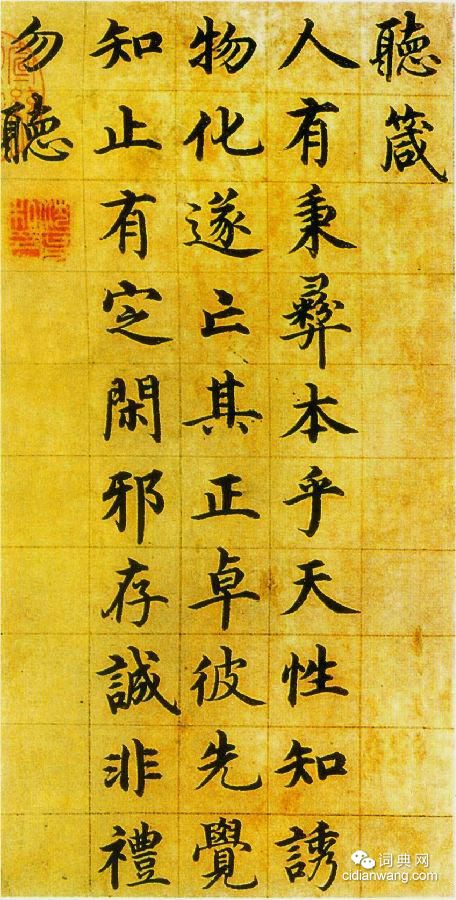 聽箴
人有秉彝本乎天性知誘
物化遂亡其正卓彼先覺
知止有定閑邪存誠非禮
勿聽
词典网
cidianwang.com